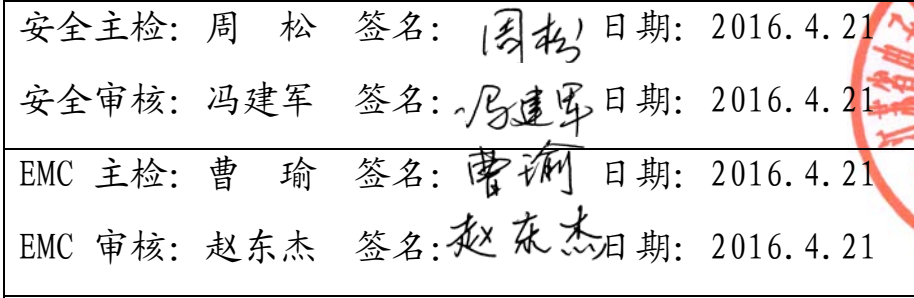 安全主检: 周 松 签名: 周松 日期: 2016.4.21
安全审核: 冯建军 签名: 冯建军 日期: 2016.4.21
EMC 主检: 曹 瑜 签名: 曹瑜 日期: 2016.4.21
EMC 审核: 赵东杰 签名: 赵东杰 日期: 2016.4.21